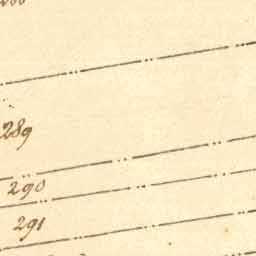 289
290
291